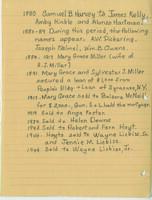 1880 Samuel B Harvey to James Kelly,
Amby Kinkle and Alonzo Hartman.
1881-89 During this period, the following
names appear. A.W. Pickering,
Joseph Palmel, Wm. B. Owens.
1890 Mary Grace Miller (wife of
S.J. Miller)
1891 Mary Grace and Sylvester J. Miller
secured a loan of $2,000 from
People's Bldg + Loan of Syracuse, N.Y.
1907 Mary Grace sold to Barbara McNeil
for $2,500. Gun. S. + L. held the mortgage.
1919 Sold to Anga Foster
1920 Sold to Helen Downs
1945 Sold to Robert and Fern Hoyt.
1946 Hoyts sold to Wayne Liebize, Sr.
and Jennie M. Liebize.
1964 Sold to Wayne Liebize, Jr.